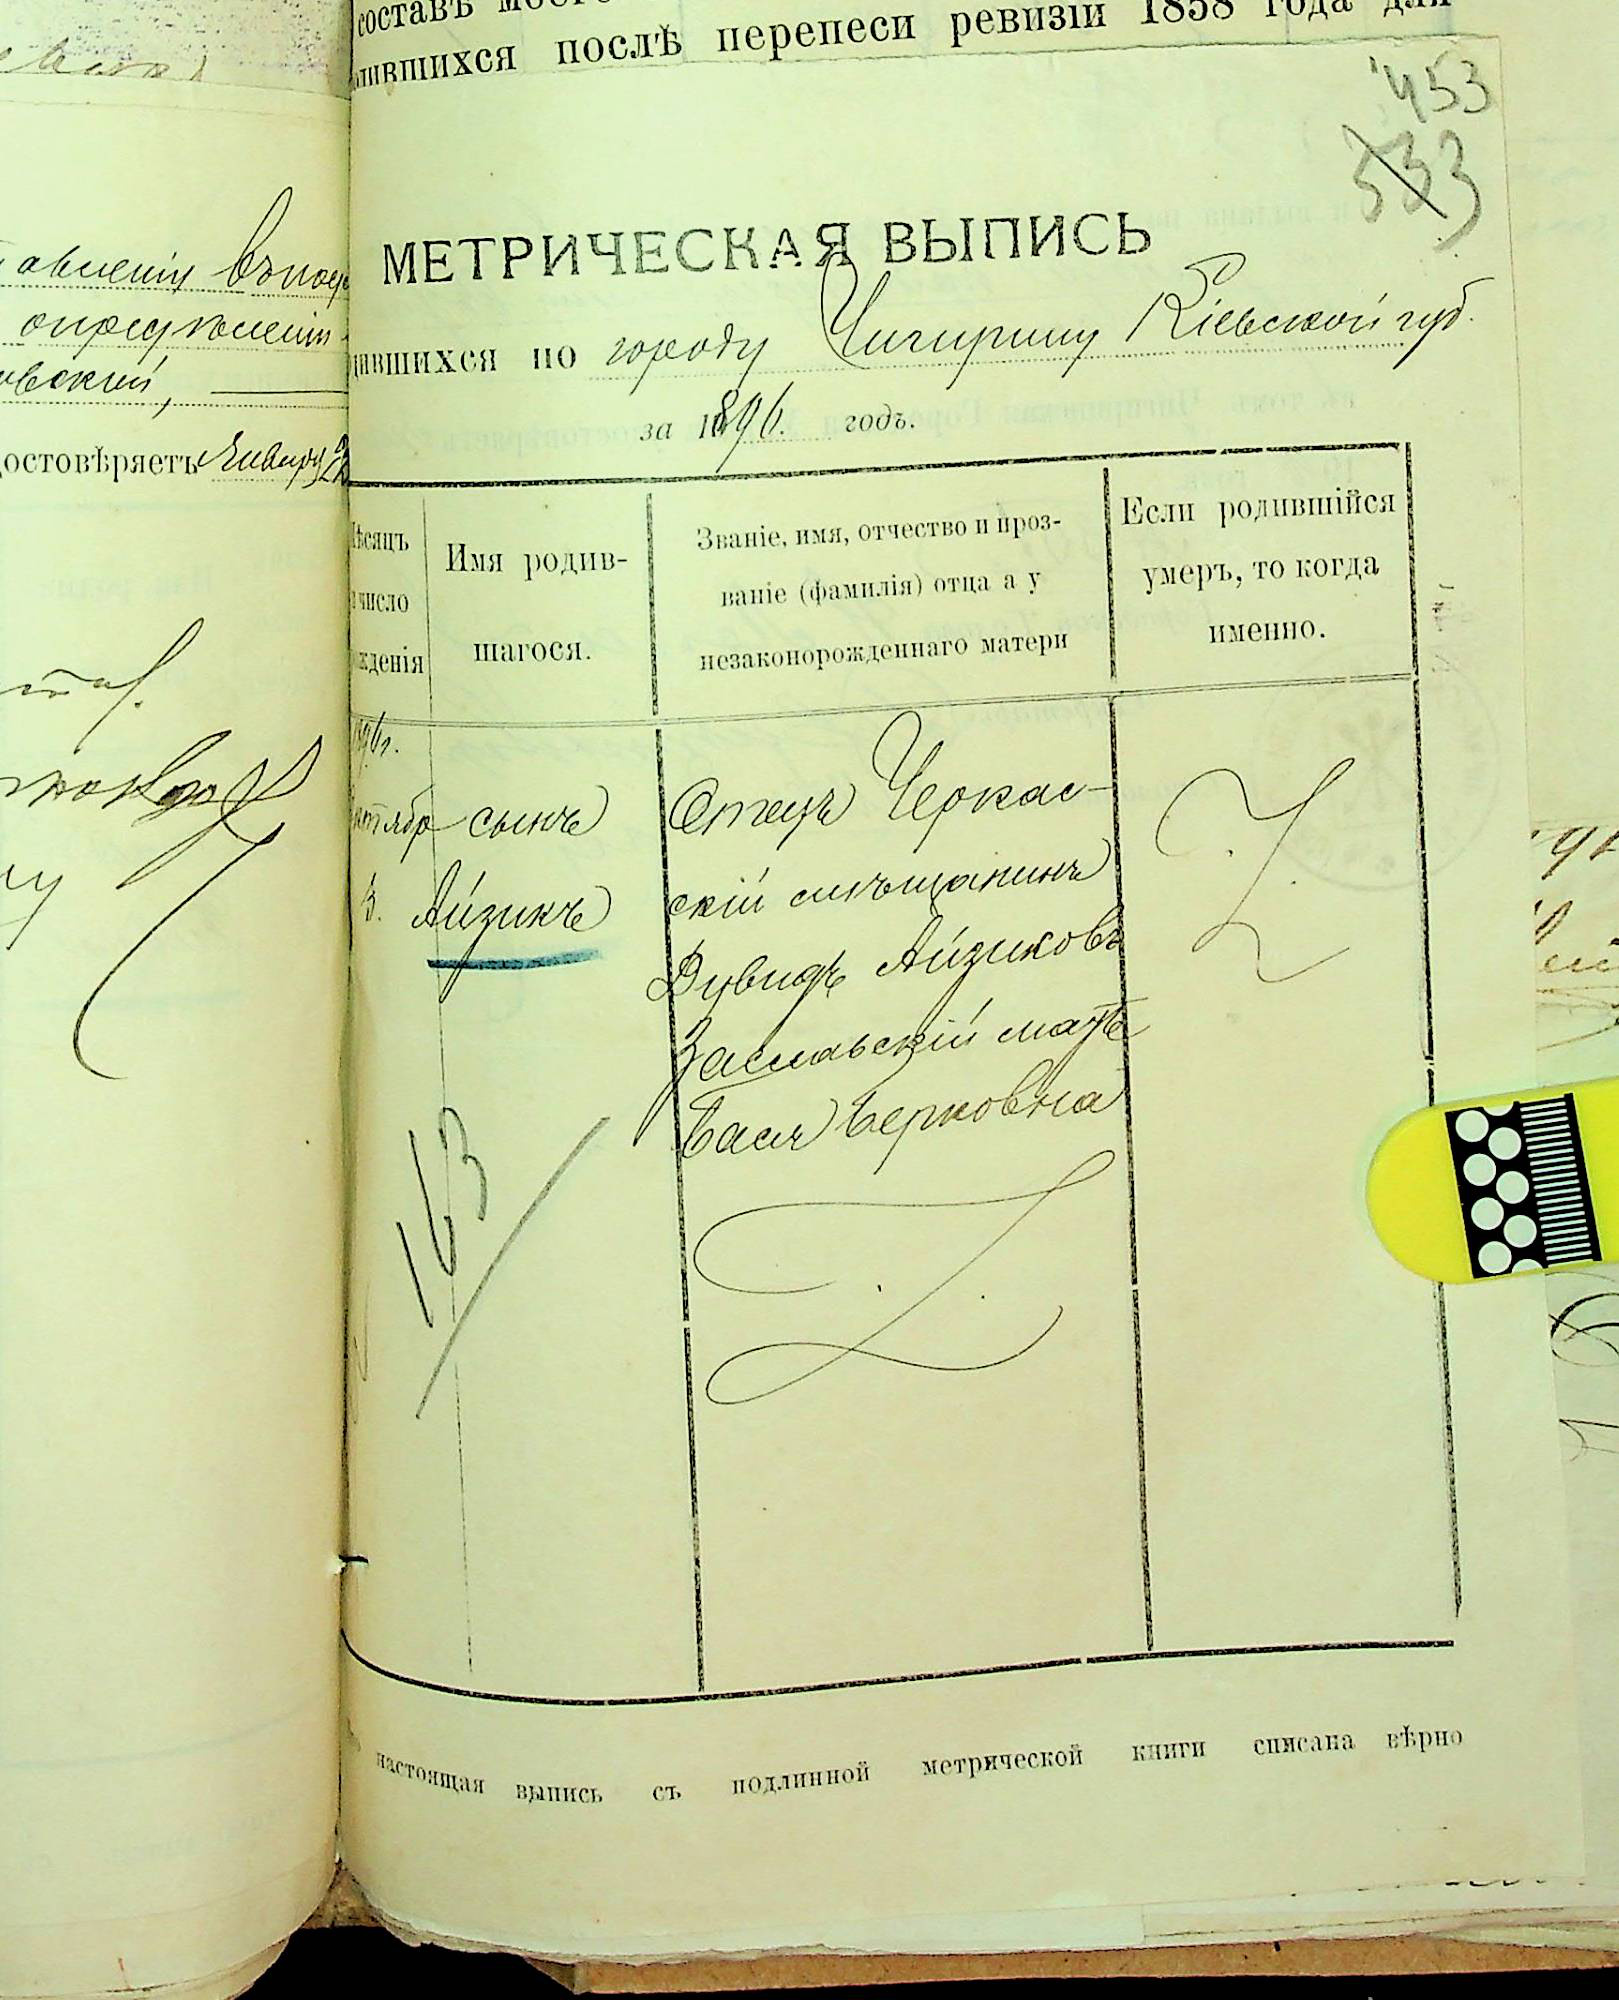 составъ
послѣ перепеси ревизіи 1858 года для
453
533
МЕТРИЧЕСКАЯ ВЫПИСЬ
дившихся по городу Чигирину Кіевской губ.
за 1896. годъ.
Мѣсяцъ
и число
рожденія
Имя родив-
шагося.
Званіе, имя, отчество и проз-
ваніе (фамилія) отца а у
незаконорожденнаго матери
Если родившійся
умеръ, то когда
именно.
1896 г.
октябр
3.
сынъ
Айзикъ
Отецъ Черкас-
скій мѣщанинъ
Дувидъ Айзиковъ
Заславскій мать
Бася Берковна
163
настоящая выпись съ подлинной метрической книги списана вѣрно
опредѣленію
достовѣряетъ Январу